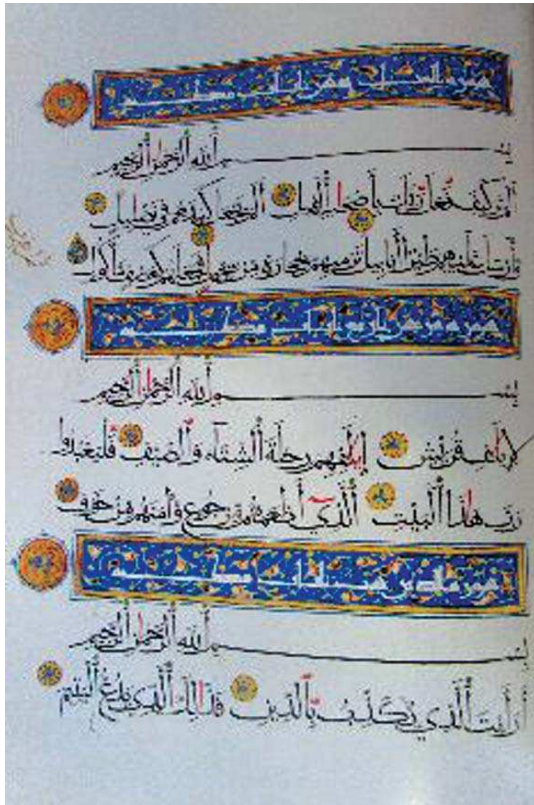 سورة الفيل وهي ايات مكية
بسم الله الرحمن الرحيم
ألم تر كيف فعل ربك بأصحاب الفيل ألم يجعل كيدهم في تضليل
وأرسل عليهم طيرا أبابيل ترميهم بحجارة من سجيل فجعلهم كعصف مأكول
سورة قريش اربع ايات مكية
بسم الله الرحمن الرحيم
لإيلاف قريش إيلافهم رحلة ألشتاء وألصيف فليعبدوا
رب هاذا ألبيت ألذي أطعمهم من جوع وآمنهم من خوف
سورة ايات
بسم الله الرحمن الرحيم
أرأيت ألذي يكذب بألدين فذالك ألذي يدع أليتيم